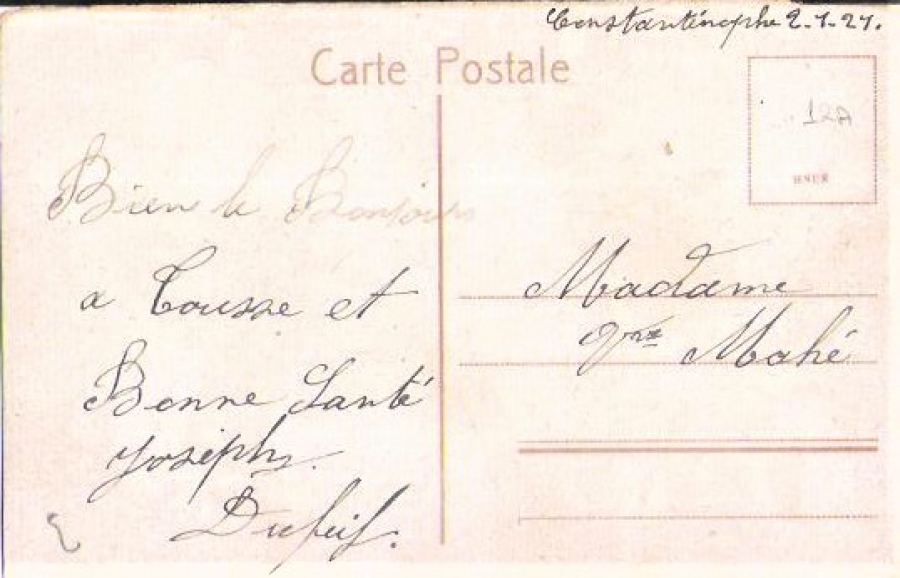 Constantinophe 2.1.21.
Carte Postale
Bien le Bonjours
a Tousse et
Bonne Santé
Joseph
Madame
Vve Mahé